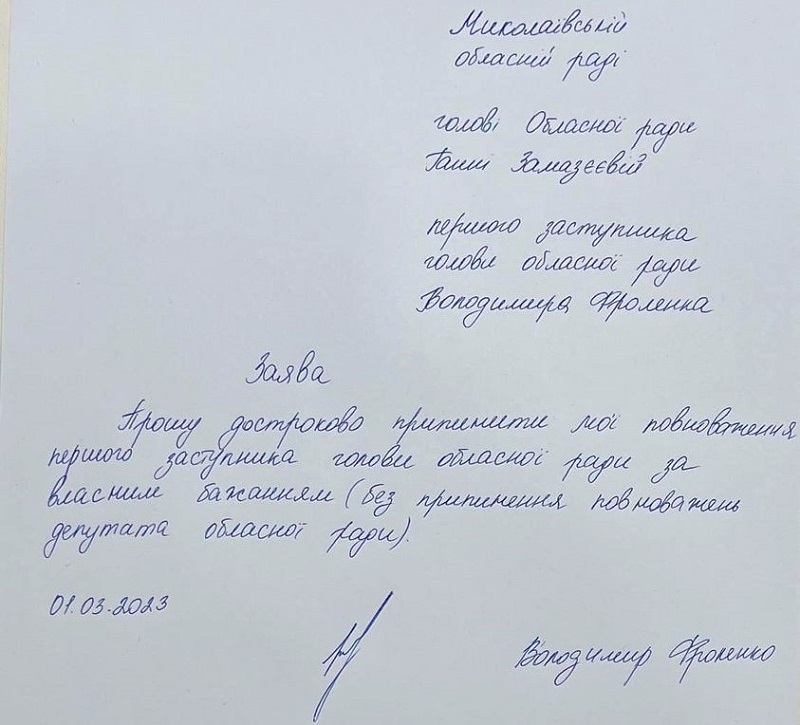 Миколаївській
обласній раді
голові Обласної ради
Ганні Замазєєвій
першого заступника
голови обласної ради
Володимира Фроленка
Заява
Прошу достроково припинити мої повноваження
першого заступника голови обласної ради за
власним бажанням (без припинення повноважень
депутата обласної ради).
01.03.2023
Володимир Фроленко